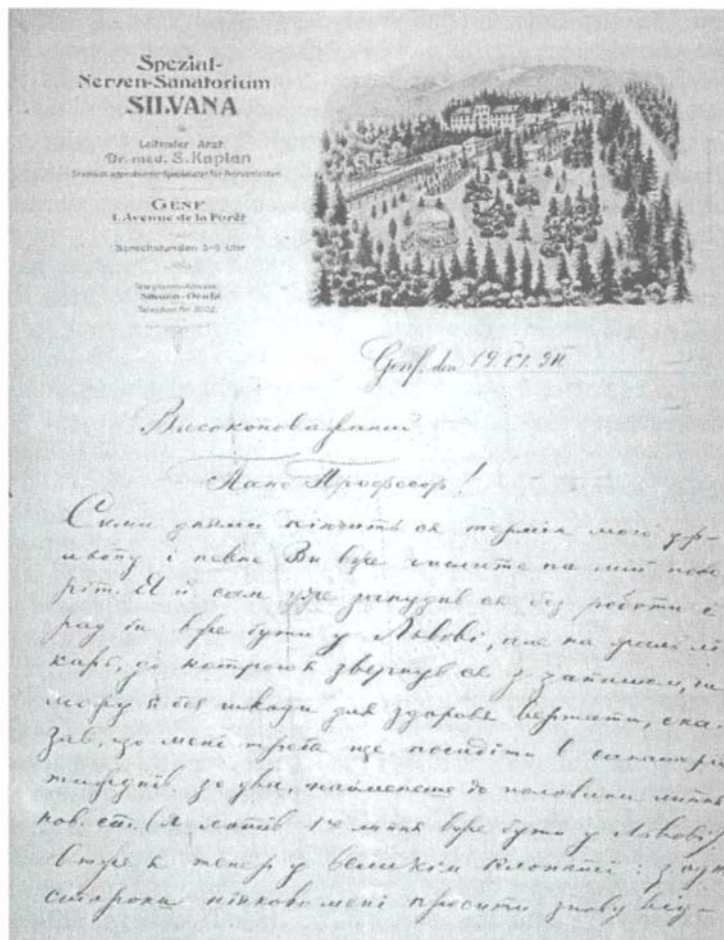 Spezial-
Nerven-Sanatorium
SILVANA
Leitender Arzt:
Dr. med. S. Kaplan
GENF
1. Avenue de la Forêt
Sprechstunden 3-5 Uhr
Telegramm-Adresse:
Silvana-Genf
Telephon Nr.
Genf, den 19. VI.
Високоповажаний
Пане Професор!
Сими днями кінчить ся термін мого ур-
льопу і певне Ви вже на мій пово-
ріт. Я й сам уже занудив ся без роботи і
рад би вже бути у Львові, але на лі-
карь, до котрого я звернув ся з запитанєм, чи
можу я без шкоди для здоровя вертати, ска-
зав, що мені треба ще посидіти в санаторії
тиждень зо два, найменше до половини липня
нов. ст. (Я хотів 1-е липня вже бути у Львові).
Отже я тепер у великім клопоті: з одн
сторони ніяково мені просити знову від-